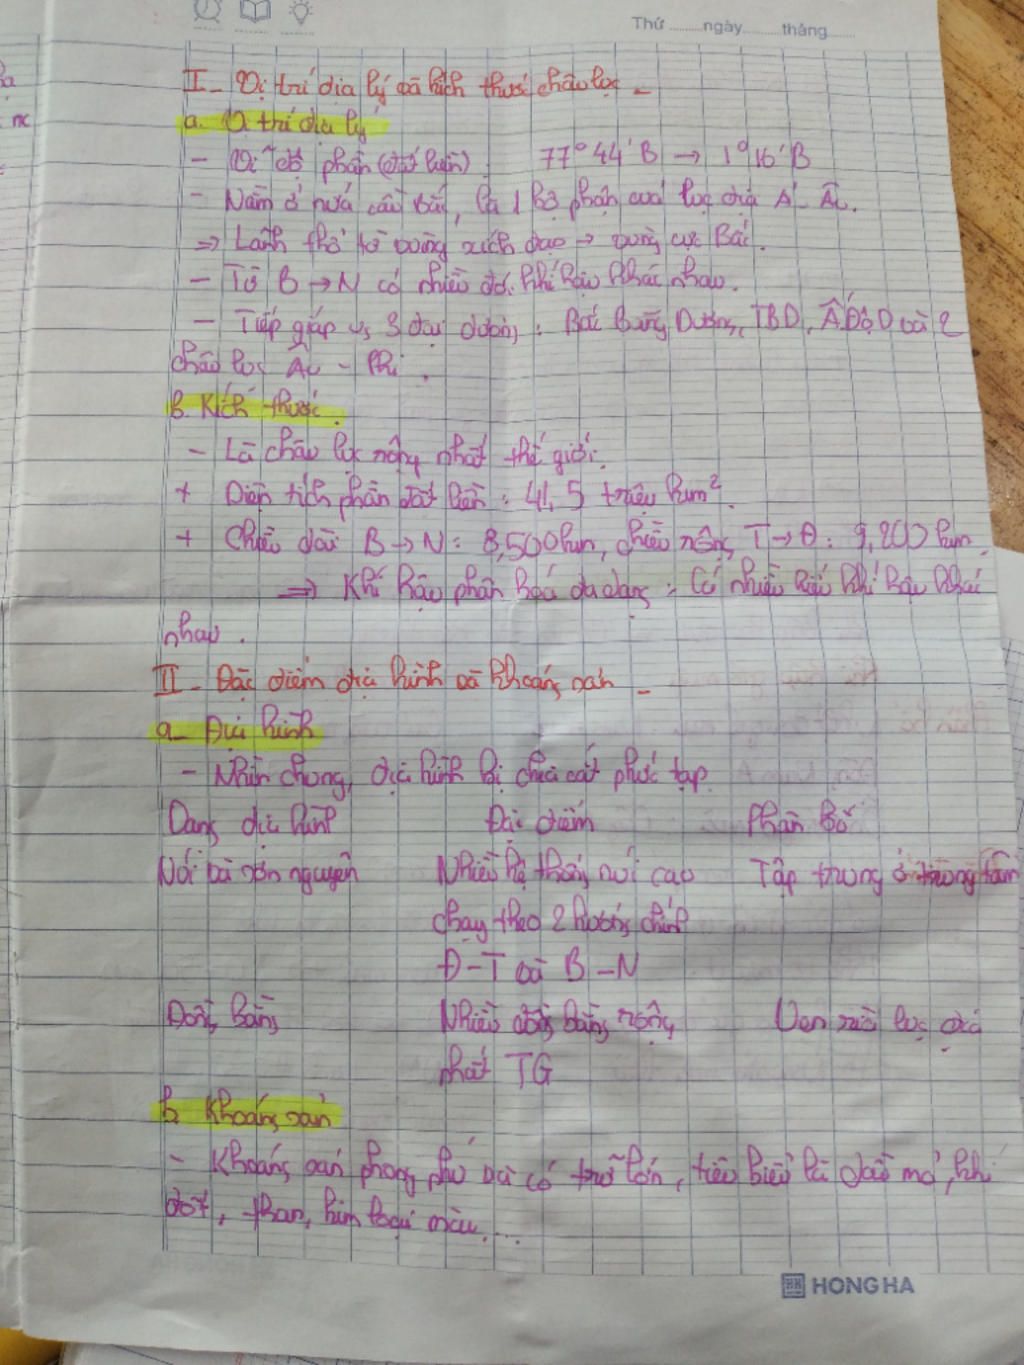 Thứ ........ngày........ tháng......
I - Vị trí địa lý và kích thước châu lục -
a. Vị trí địa lý
- Vĩ độ phần (đất liền) 77°44'B → 1°16'B
- Nằm ở nửa cầu Bắc, là 1 bộ phận của lục địa Á - Âu.
=> Lãnh thổ từ vùng xích đạo → vùng cực Bắc.
- Từ B → N có nhiều đới khí hậu khác nhau.
- Tiếp giáp vs 3 đại dương : Bắc Băng Dương, TBD, ÂĐộD và 2
châu lục Âu - Phi.
b. Kích thước.
- Là châu lục rộng nhất thế giới.
+ Diện tích phần đất liền : 41,5 triệu km²
+ Chiều dài B → N : 8,500km, chiều rộng T → Đ : 9,200km.
=> Khí hậu phân hoá đa dạng : Có nhiều kiểu khí hậu khác
nhau.
II - Đặc điểm địa hình và khoáng sản -
a - Địa hình
- Nhìn chung, địa hình bị chia cắt phức tạp
Dạng địa hình Đặc điểm Phân bố
Núi và sơn nguyên Nhiều hệ thống núi cao Tập trung ở trung tâm
chạy theo 2 hướng chính
Đ - T và B - N
Đồng bằng Nhiều đồng bằng rộng Ven rìa lục địa
nhất TG
b. Khoáng sản
- Khoáng sản phong phú và có trữ lớn, tiêu biểu là dầu mỏ, khí
đốt, than, kim loại màu....
HONG HA